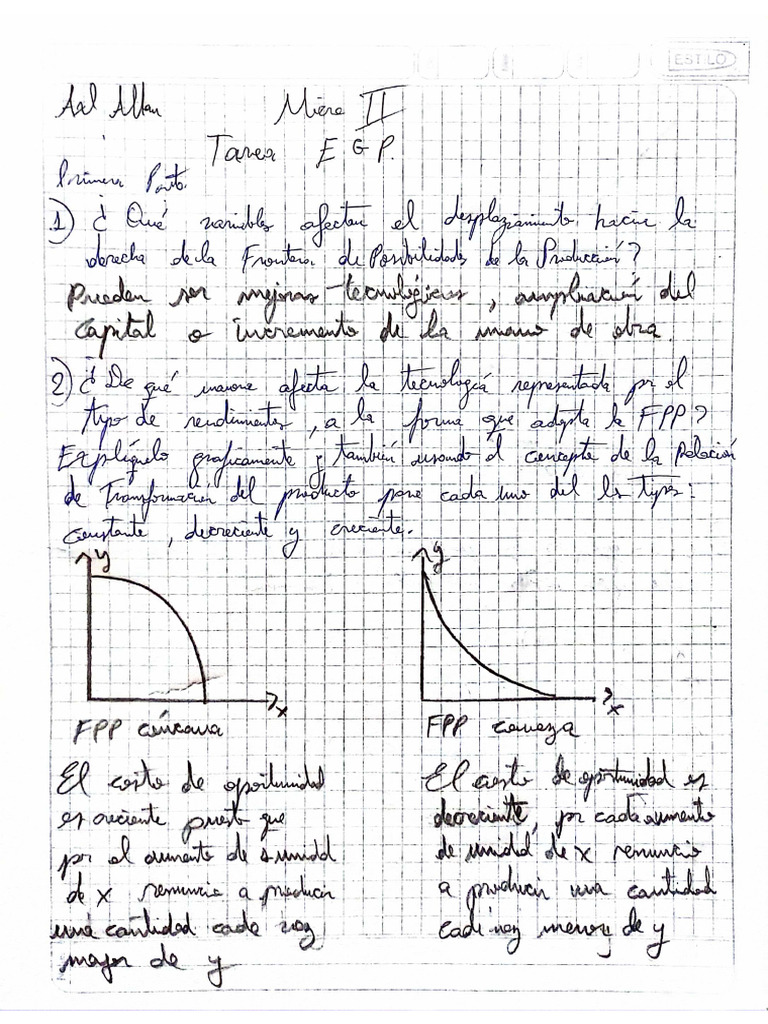 ESTILO
Axl Allan Micro II
Tarea E G P.
Primera Parte
1) ¿Qué variables afectan el desplazamiento hacia la
derecha de la Frontera de Posibilidades de la Producción?
Pueden ser mejoras tecnológicas, ampliación del
capital o incremento de la mano de obra.
2) ¿De qué manera afecta la tecnología representada por el
tipo de rendimientos, a la forma que adopta la FPP?
Explíquelo graficamente y también usando el concepto de la Relación
de Transformación del producto para cada uno de los tipos:
constante, decreciente y creciente.
y
x
FPP cóncava
El costo de oportunidad
es creciente puesto que
por el aumento de 1 unidad
de x renuncia a producir
una cantidad cada vez
mayor de y
y
x
FPP convexa
El costo de oportunidad es
decreciente, por cada aumento
de unidad de x renuncio
a producir una cantidad
cada vez menor de y